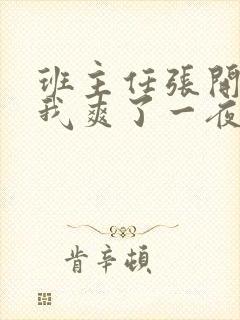 班主任張開
我爽了一夜
肯辛頓